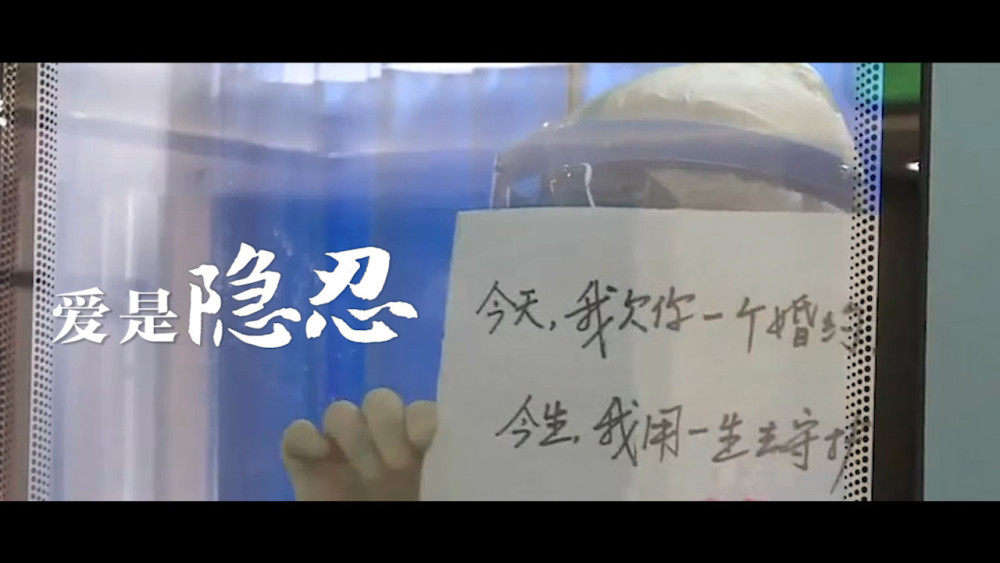 爱是隐忍
今天,我欠你一个婚
今生,我用一生去守